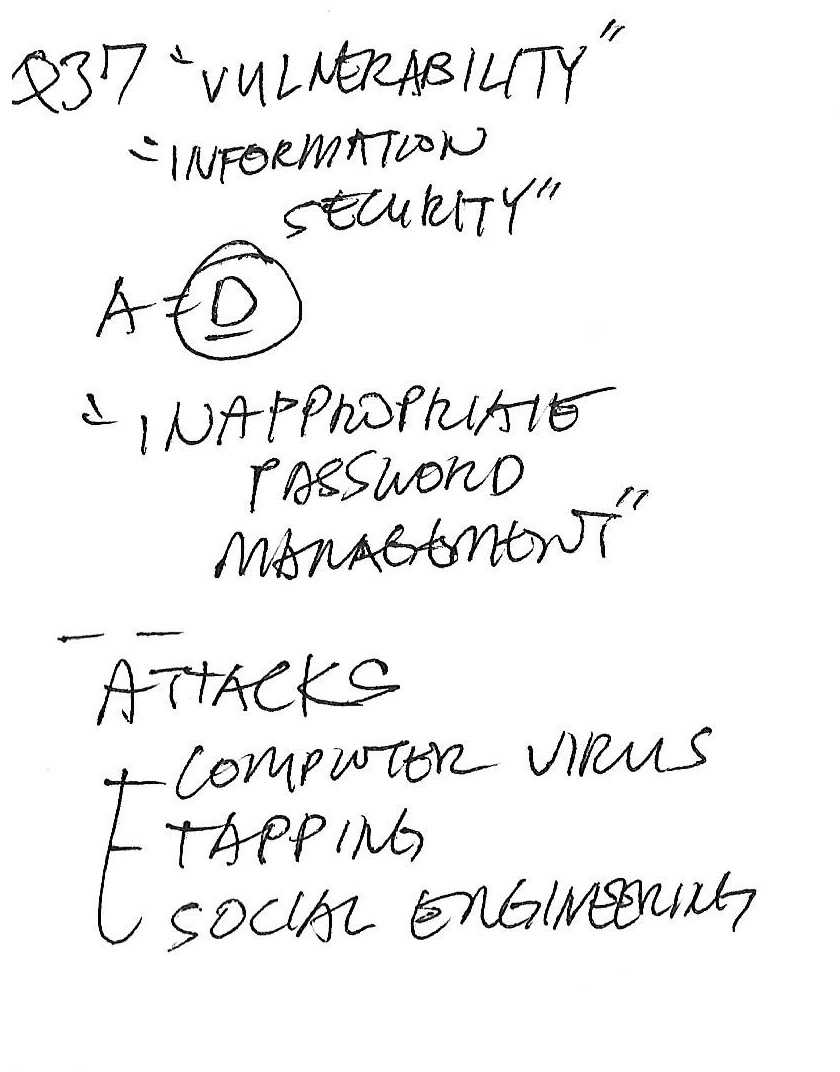 Q37 "VULNERABILITY"
"INFORMATION
SECURITY"
A = D
"INAPPROPRIATE
PASSWORD
MANAGEMENT"
ATTACKS
COMPUTER VIRUS
TAPPING
SOCIAL ENGINEERING